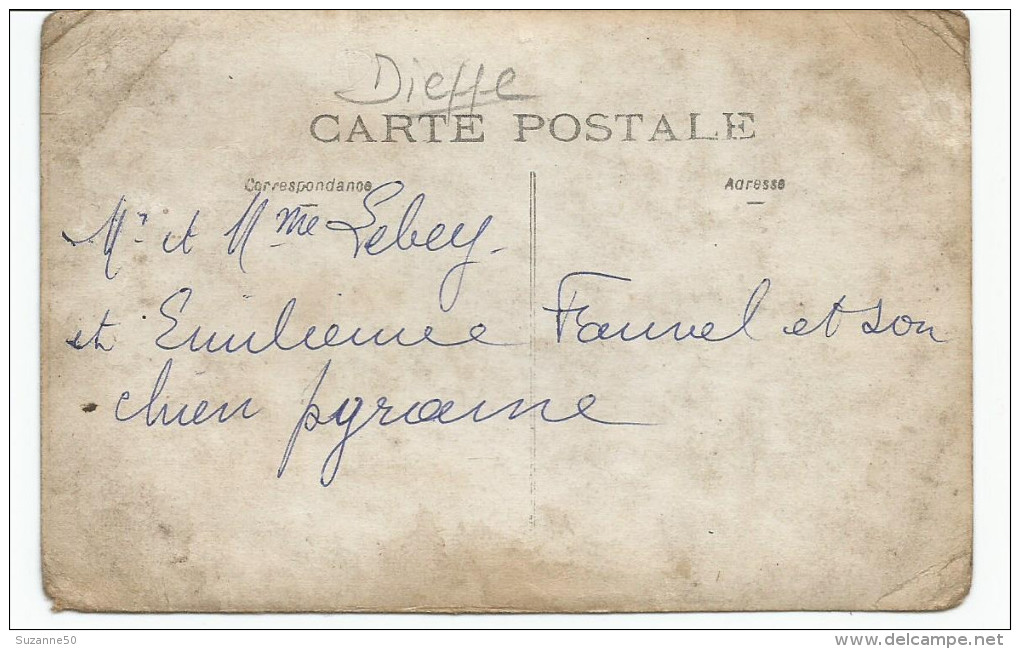 Dieppe
CARTE POSTALE
Correspondance
Adresse
Mr et Mme Lebey.
et Emilienne Fauvel et son
chien pyrame
Suzanne50
www.delcampe.net